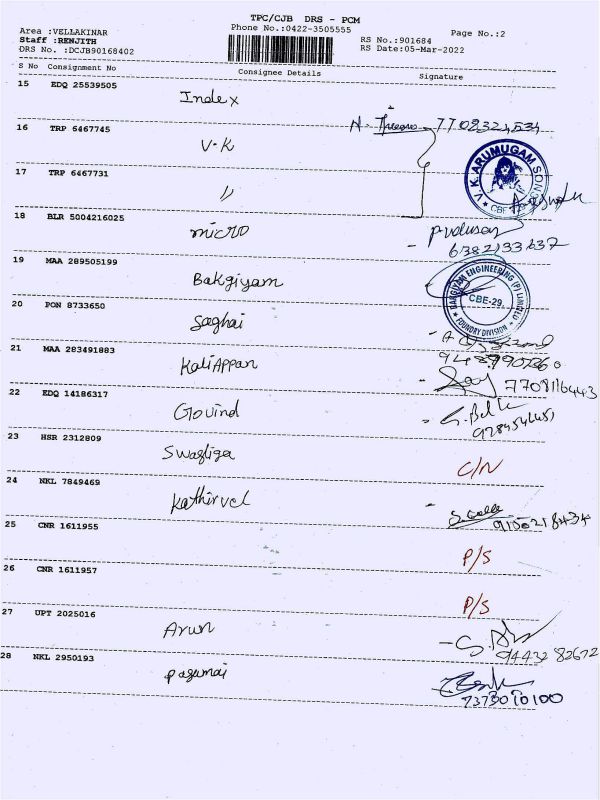 TPC/CJB DRS - PCM
Area :VELLAKINAR Phone No.:0422-3505555 Page No.:2
Staff :RENJITH RS No.:901684
DRS No. :DCJB90168402 RS Date:05-Mar-2022
S No Consignment No Consignee Details Signature
15 EDQ 25539505 Index
7708324534
16 TRP 6467745 V-K
V.K.ARUMUGAM SONS
17 TRP 6467731 "
18 BLR 5004216025 micro
6382133637
19 MAA 289505199 Bakgiyam
BAKGIYAM ENGINEERING (P) LIMITED
CBE-29.
FOUNDRY DIVISION
20 PON 8733650
21 MAA 283491883 KaliAppan
7708116443
22 EDQ 14186317 Govind
23 HSR 2312809 Swastiga C/N
24 NKL 7849469 Kathirvel
9150218434
25 CNR 1611955 P/S
26 CNR 1611957 P/S
27 UPT 2025016 Arun
9443282672
28 NKL 2950193 Pasumai
7373010100